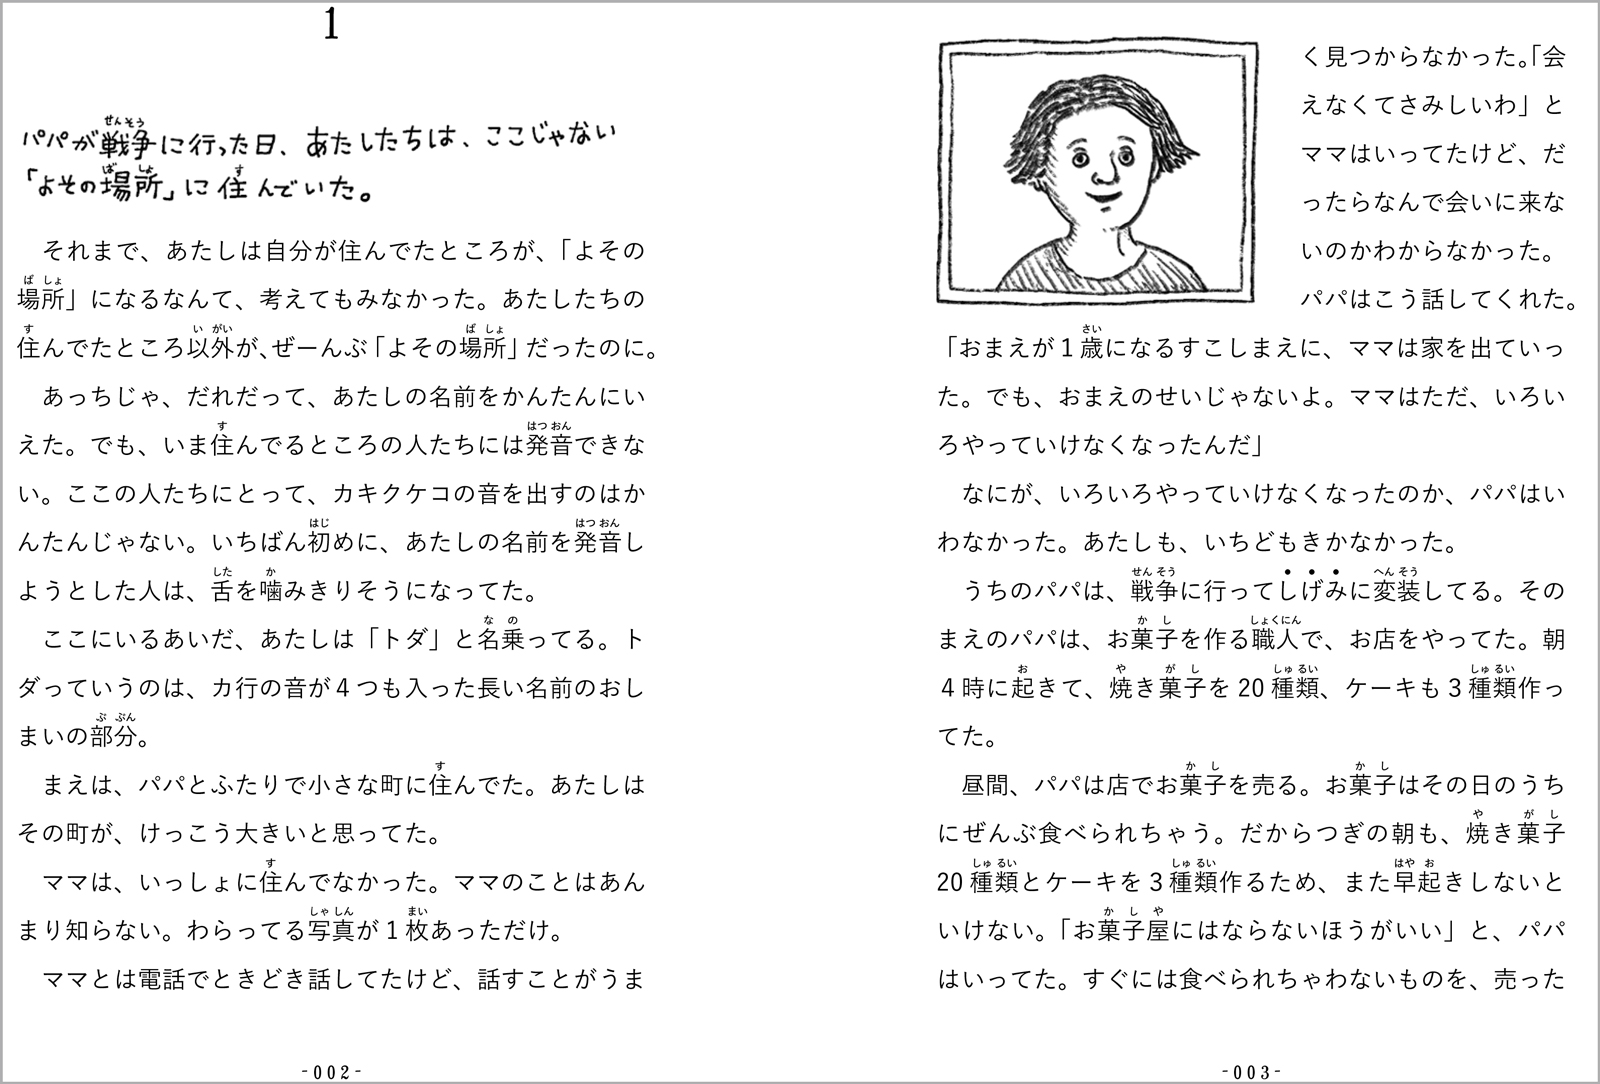 1
パパが戦争に行った日、あたしたちは、ここじゃない
「よその場所」に住んでいた。
それまで、あたしは自分が住んでたところが、「よその
場所」になるなんて、考えてもみなかった。あたしたちの
住んでたところ以外が、ぜーんぶ「よその場所」だったのに。
あっちじゃ、だれだって、あたしの名前をかんたんにい
えた。でも、いま住んでるところの人たちには発音できな
い。ここの人たちにとって、カキクケコの音を出すのはか
んたんじゃない。いちばん初めに、あたしの名前を発音し
ようとした人は、舌を噛みきりそうになってた。
ここにいるあいだ、あたしは「トダ」と名乗ってる。ト
ダっていうのは、カ行の音が4つも入った長い名前のおし
まいの部分。
まえは、パパとふたりで小さな町に住んでた。あたしは
その町が、けっこう大きいと思ってた。
ママは、いっしょに住んでなかった。ママのことはあん
まり知らない。わらってる写真が1枚あっただけ。
ママとは電話でときどき話してたけど、話すことがうま
-002-
く見つからなかった。「会
えなくてさみしいわ」と
ママはいってたけど、だ
ったらなんで会いに来な
いのかわからなかった。
パパはこう話してくれた。
「おまえが1歳になるすこしまえに、ママは家を出ていっ
た。でも、おまえのせいじゃないよ。ママはただ、いろい
ろやっていけなくなったんだ」
なにが、いろいろやっていけなくなったのか、パパはい
わなかった。あたしも、いちどもきかなかった。
うちのパパは、戦争に行ってしげみに変装してる。その
まえのパパは、お菓子を作る職人で、お店をやってた。朝
4時に起きて、焼き菓子を20種類、ケーキも3種類作っ
てた。
昼間、パパは店でお菓子を売る。お菓子はその日のうち
にぜんぶ食べられちゃう。だからつぎの朝も、焼き菓子
20種類とケーキを3種類作るため、また早起きしないと
いけない。「お菓子屋にはならないほうがいい」と、パパ
はいってた。すぐには食べられちゃわないものを、売った
-003-